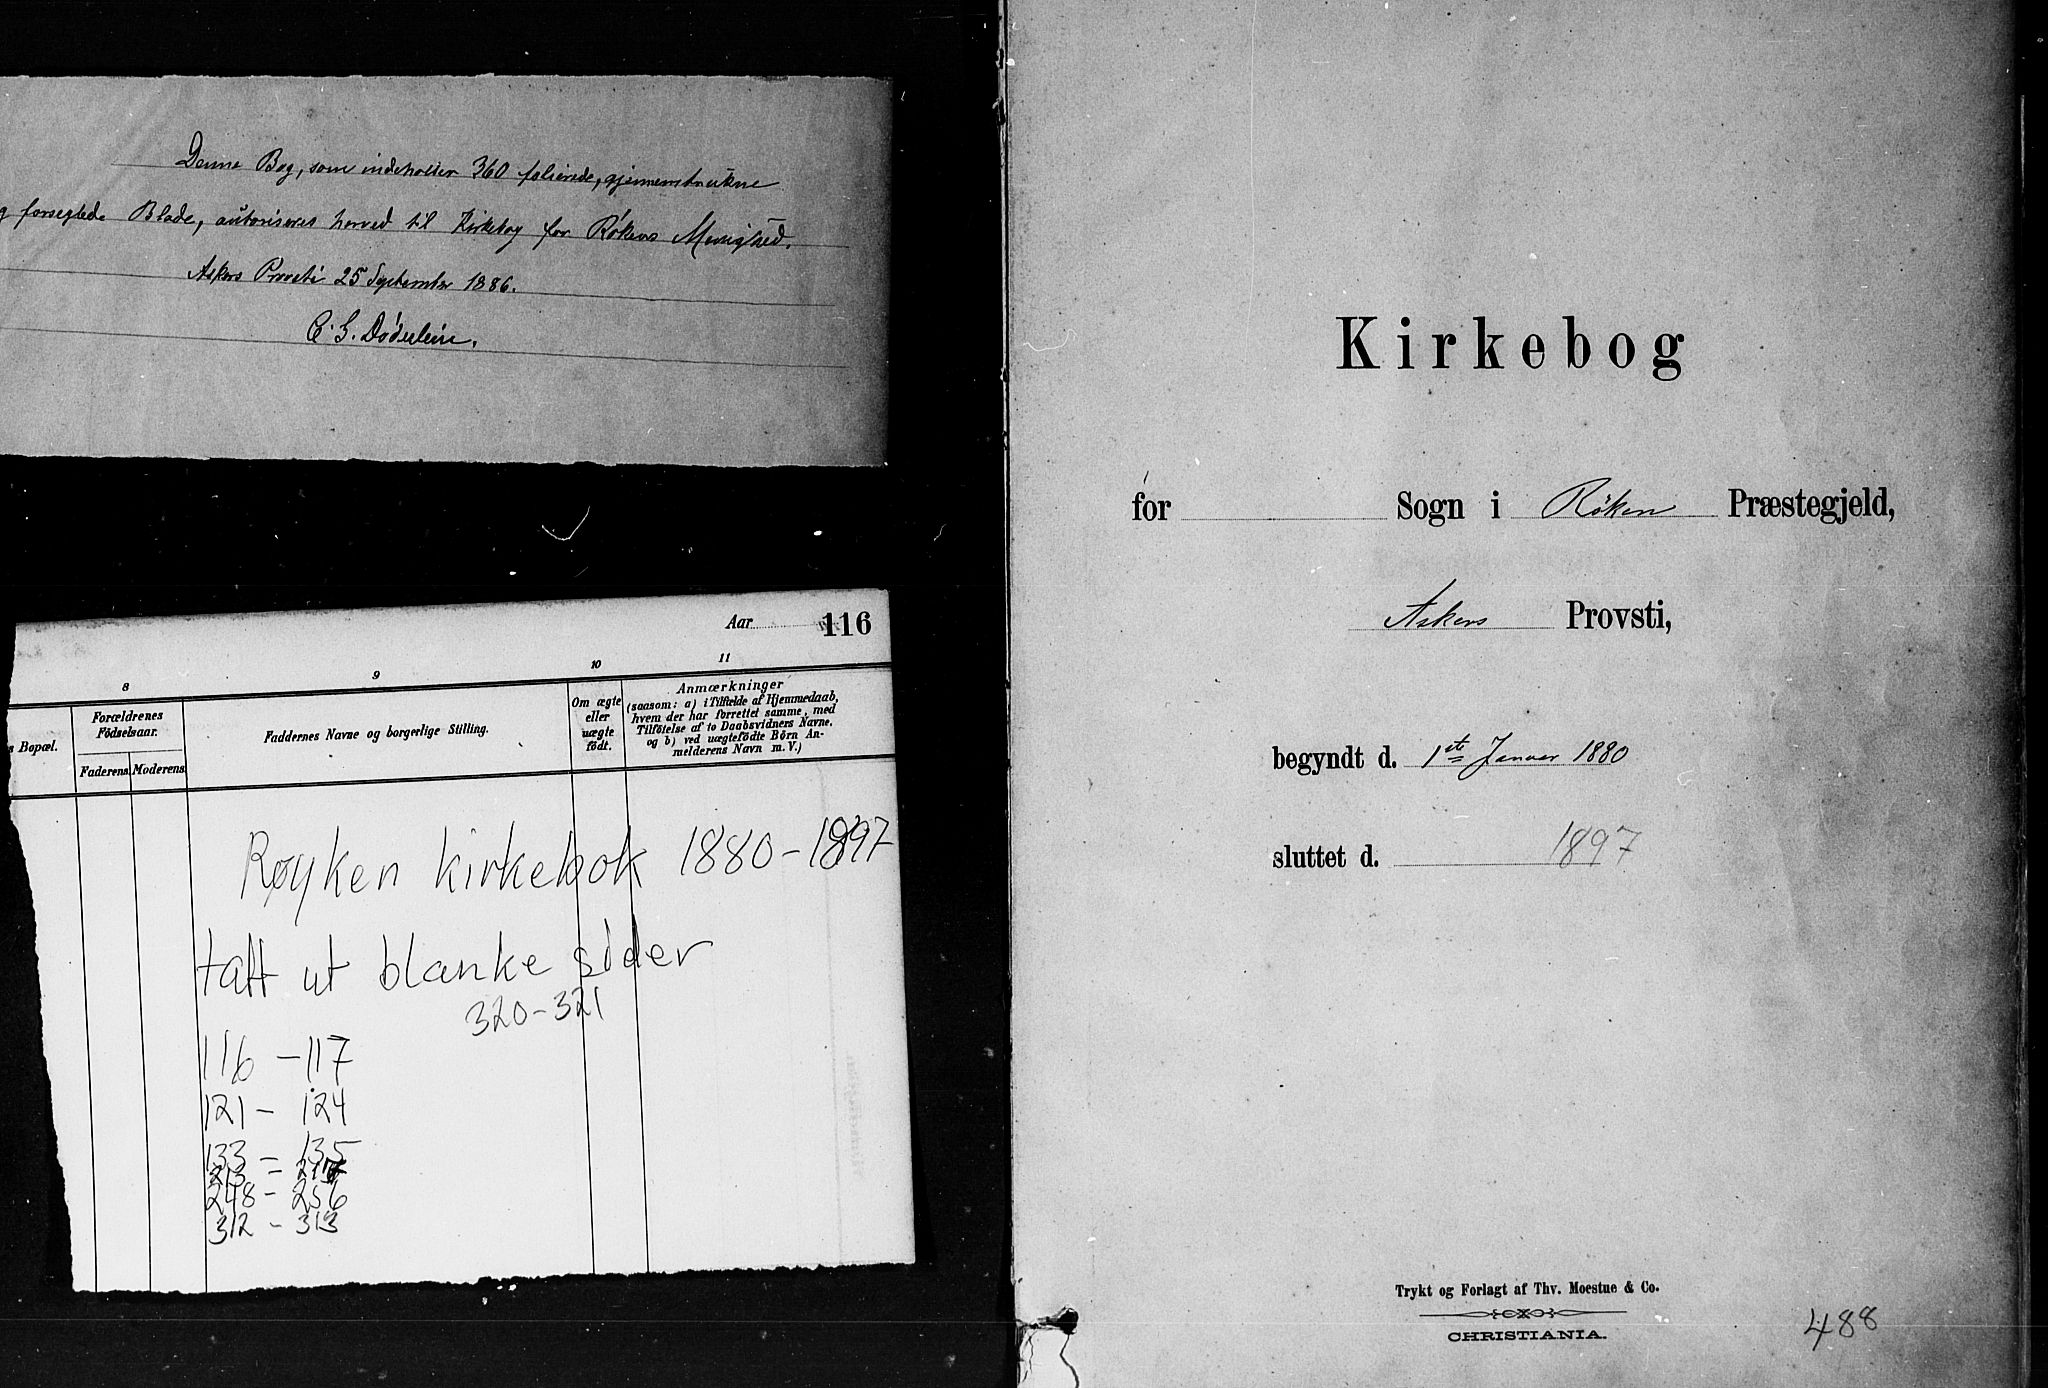 Denne Bog, som indeholder 360 folierede, gjennemtrukne
g forseglede Blade, autoriseres herved til Kirkebog for Røkens Menighed.
Askers Provsti 25 September 1886.
C. S. Döderlein.
Aar 116
8 9 10 11
s Bopæl.
Forældrenes
Födselsaar.
Faderens. Moderens.
Faddernes Navne og borgerlige Stilling.
Om ægte
eller
uægte
födt.
Anmærkninger
(saasom: a) i Tilfælde af Hjemmedaab,
hvem der har forrettet samme, med
Tilföielse af to Daabsvidners Navne,
og b) ved uægtefödte Börn An-
melderens Navn m. V.)
Røyken kirkebok 1880-1897
tatt ut blanke sider
320-321
116 - 117
121 - 124
133 - 135
213 - 217
248 - 256
312 - 313
Kirkebog
for Sogn i Røken Præstegjeld,
Askers Provsti,
begyndt d. 1ste Januar 1880
sluttet d. 1897
Trykt og Forlagt af Thv. Moestue & Co.
CHRISTIANIA.
488